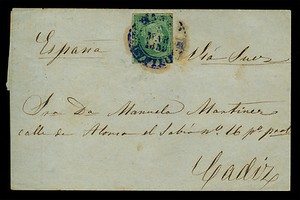 España Via Suez
Sra Da Manuela Martinez
calle de Alonso el Sabio no. 16 po pral
Cadiz